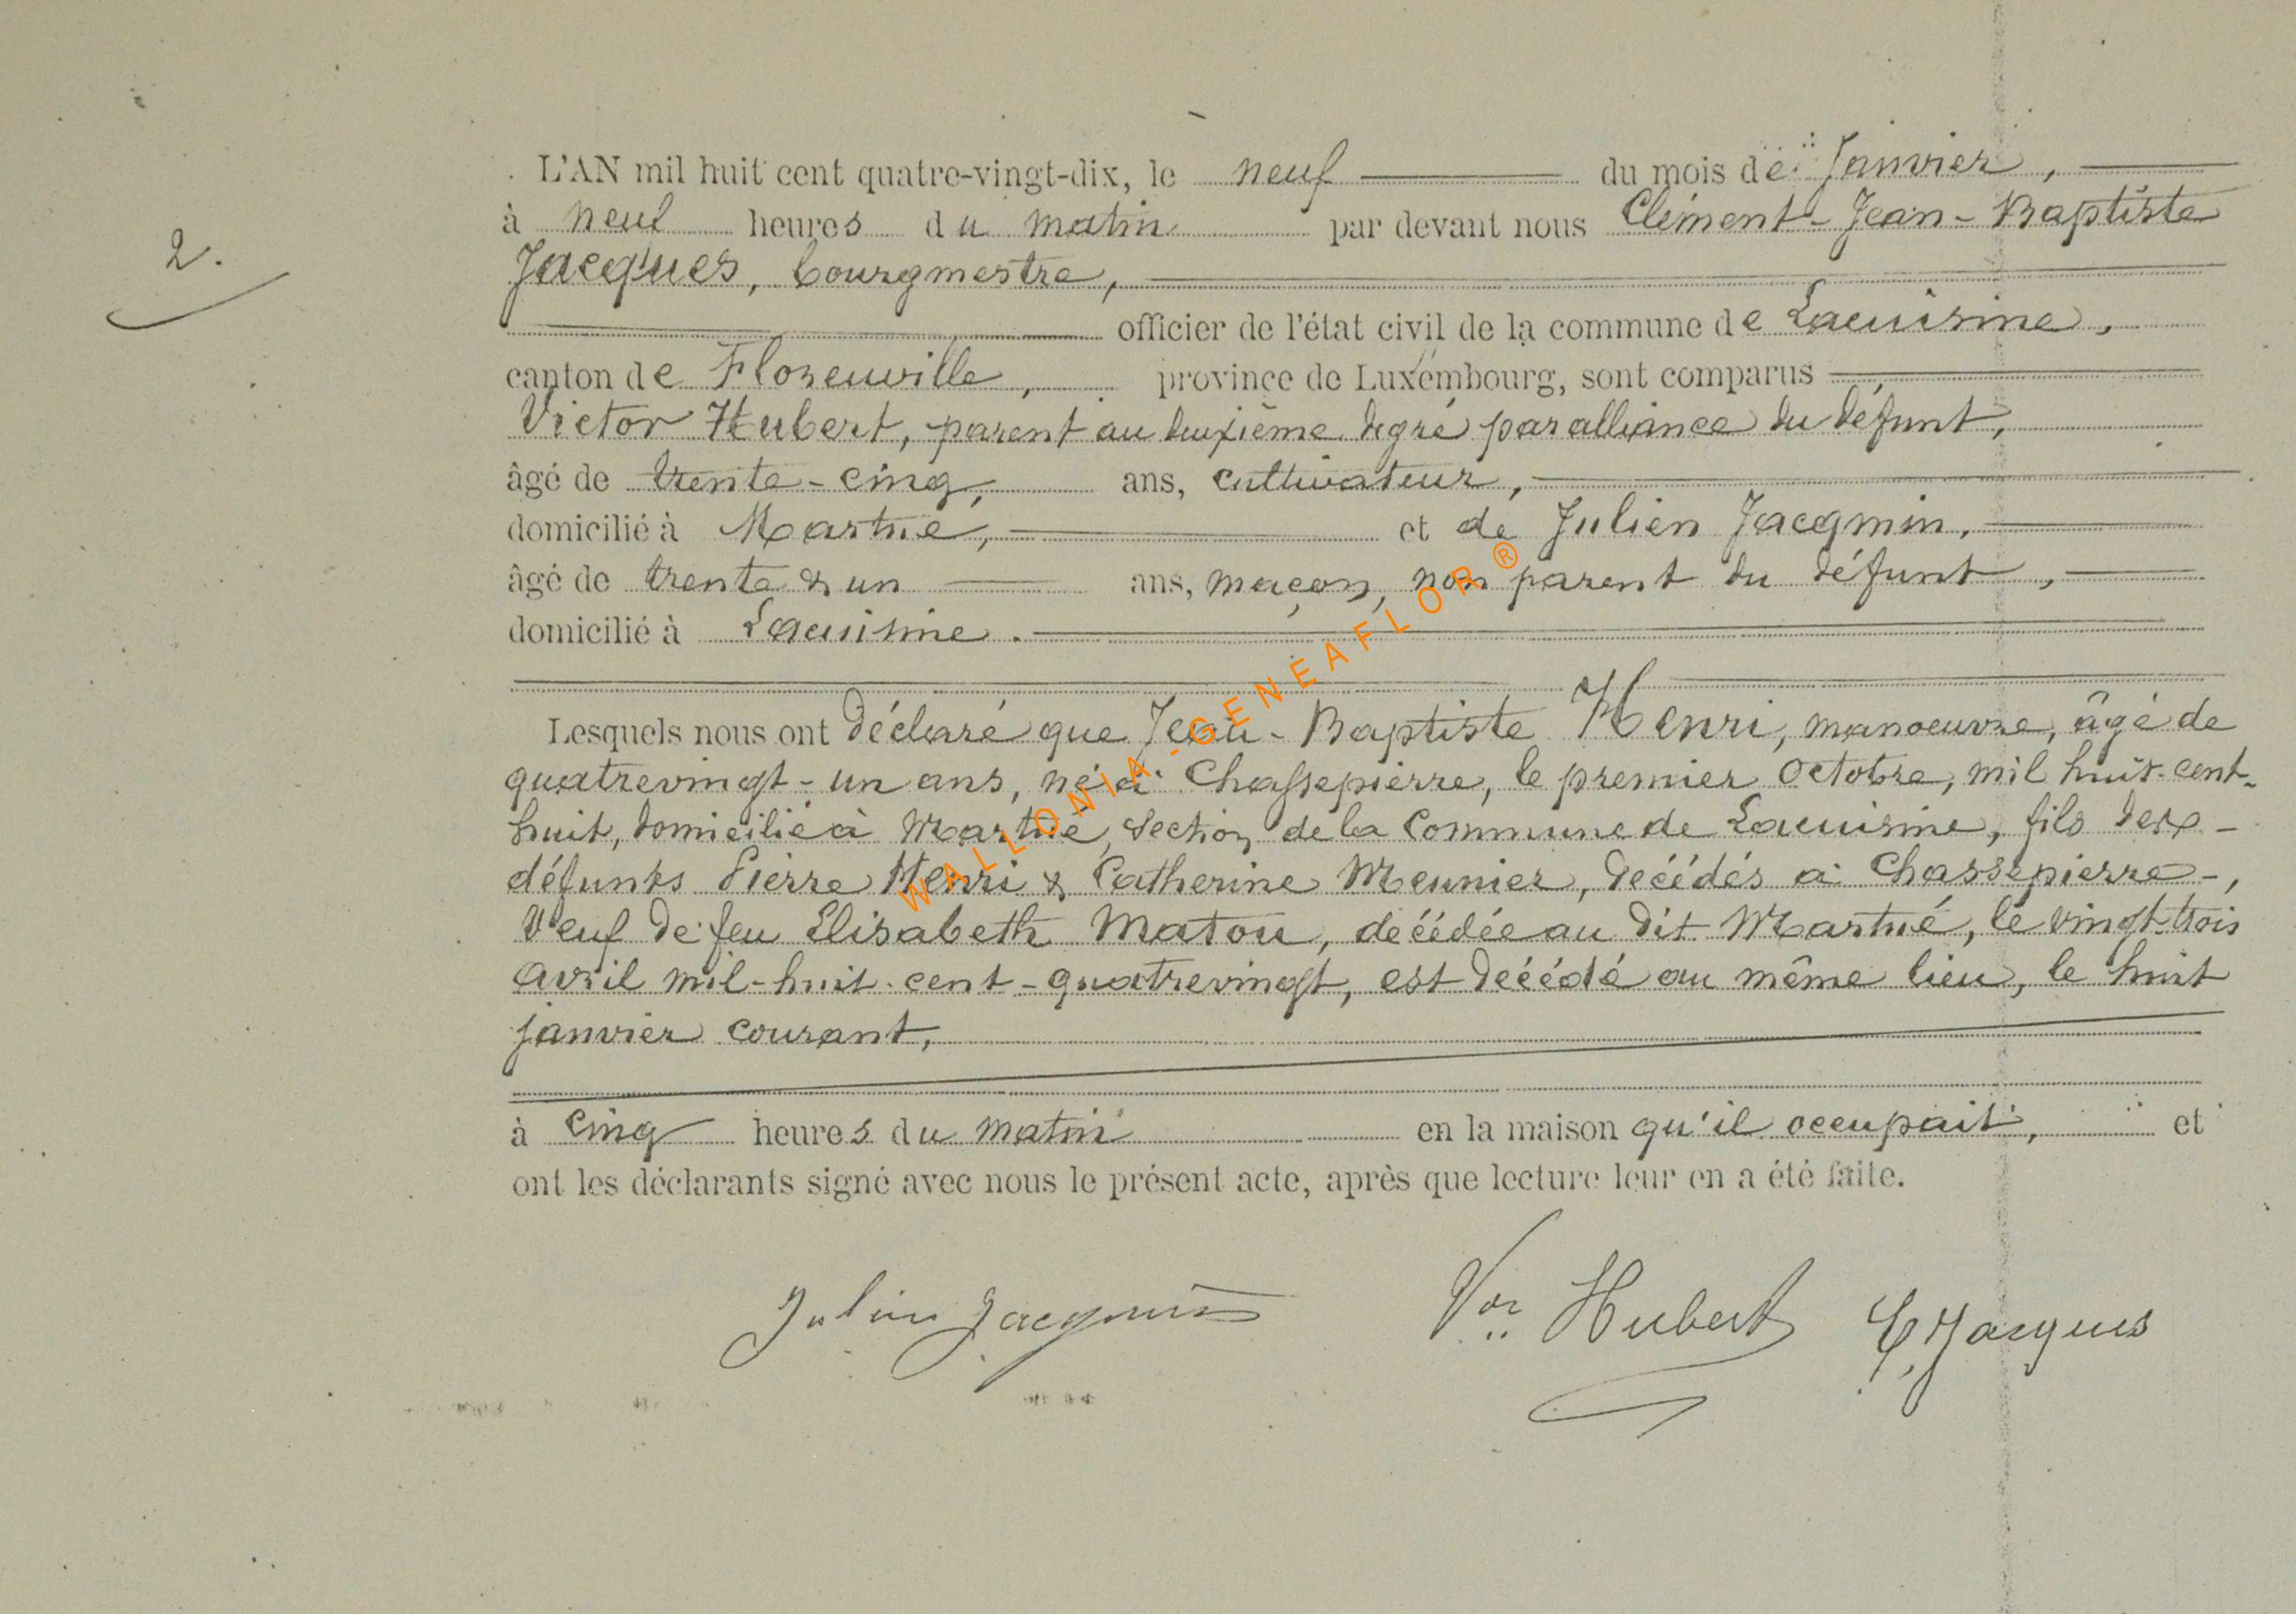 L'AN mil huit cent quatre-vingt-dix, le neuf du mois de Janvier,
2.
à neuf heures du matin par devant nous Clément-Jean-Baptiste
Jacques, bourgmestre,
officier de l'état civil de la commune de Lacuisine,
canton de Florenville, province de Luxembourg, sont comparus
Victor Hubert, parent au deuxième degré par alliance du défunt,
âgé de trente-cinq, ans, cultivateur,
domicilié à Martué, et de Julien Jacqmin,
âgé de trente & un ans, maçon, non parent du défunt,
domicilié à Lacuisine.
Lesquels nous ont déclaré que Jean-Baptiste Henri, manoeuvre, âgé de
quatrevingt-un ans, né à Chassepierre, le premier Octobre, mil huit-cent-
huit, domicilié à Martué, section de la Commune de Lacuisine, fils des
défunts Pierre Henri & Catherine Meunier, décédés à Chassepierre-,
Veuf de feu Elisabeth Matou, décédée au dit Martué, le vingt-trois
avril mil-huit-cent-quatrevingt, est décédé au même lieu, le huit
janvier courant,
à cinq heures du matin en la maison qu'il occupait, et
ont les déclarants signé avec nous le présent acte, après que lecture leur en a été faite.
Julien Jacqmin Vor Hubert C Jacques
WALLONIA-GENEAFLOR ®